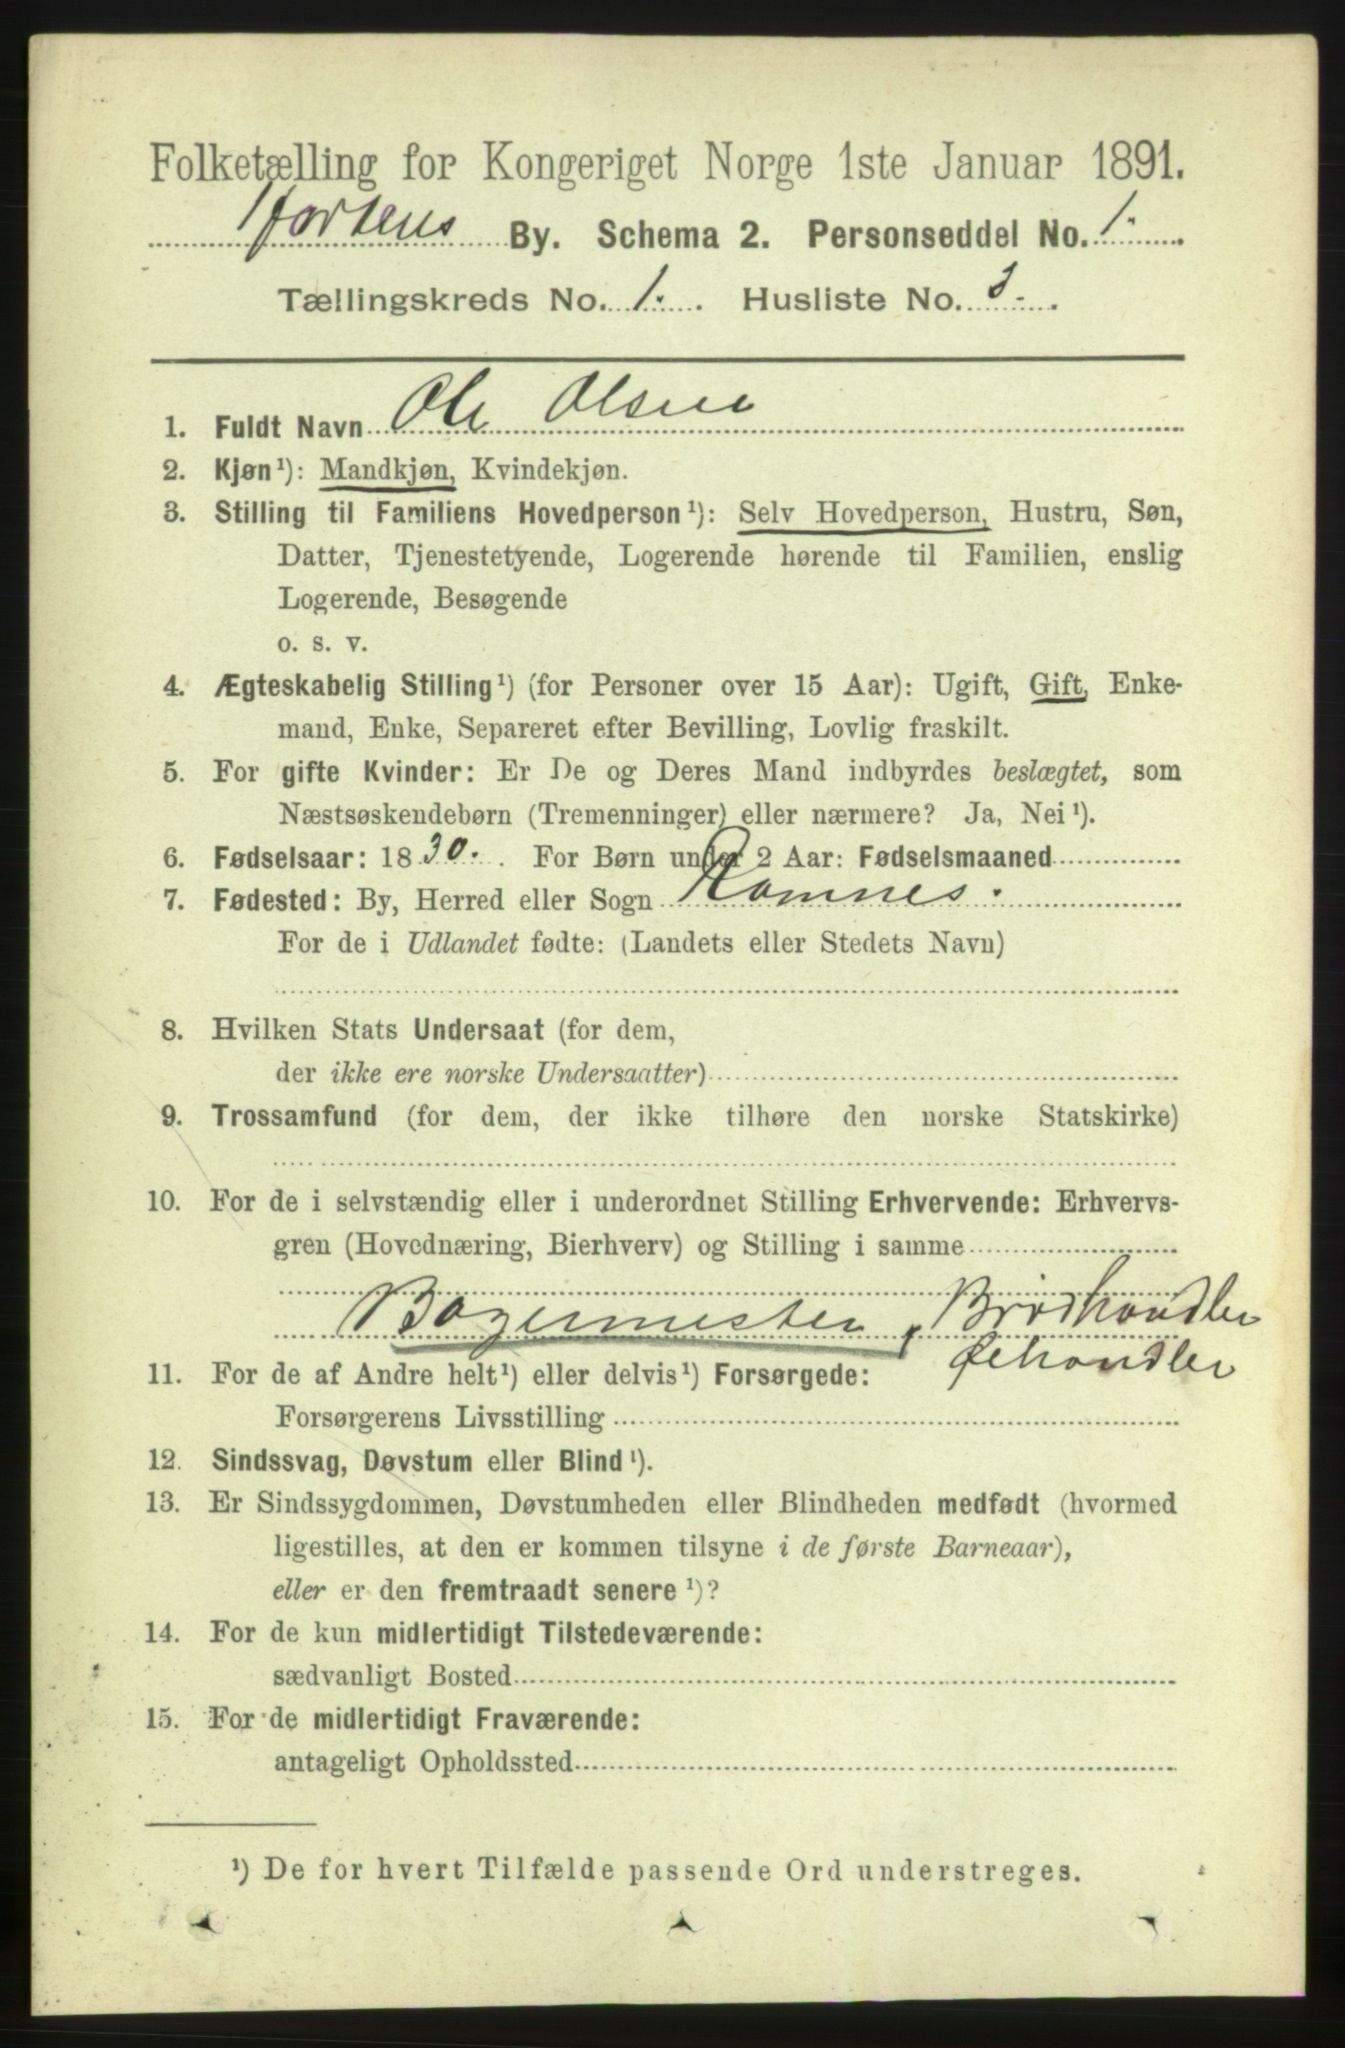 Folketælling for Kongeriget Norge 1ste Januar 1891.
Hortens By. Schema 2. Personseddel No. 1.
Tællingskreds No. 1. Husliste No. 3.
1. Fuldt Navn Ole Olsen
2. Kjøn¹): Mandkjøn, Kvindekjøn.
3. Stilling til Familiens Hovedperson¹): Selv Hovedperson, Hustru, Søn,
Datter, Tjenestetyende, Logerende hørende til Familien, enslig
Logerende, Besøgende
o. s. v.
4. Ægteskabelig Stilling¹) (for Personer over 15 Aar): Ugift, Gift, Enke-
mand, Enke, Separeret efter Bevilling, Lovlig fraskilt.
5. For gifte Kvinder: Er De og Deres Mand indbyrdes beslægtet, som
Næstsøskendebørn (Tremenninger) eller nærmere? Ja, Nei¹).
6. Fødselsaar: 1830. For Børn under 2 Aar: Fødselsmaaned
7. Fødested: By, Herred eller Sogn Ramnes.
For de i Udlandet fødte: (Landets eller Stedets Navn)
8. Hvilken Stats Undersaat (for dem,
der ikke ere norske Undersaatter)
9. Trossamfund (for dem, der ikke tilhøre den norske Statskirke)
10. For de i selvstændig eller i underordnet Stilling Erhvervende: Erhvervs-
gren (Hovednæring, Bierhverv) og Stilling i samme
Bagermester, Brødhandler
Ølhandler
11. For de af Andre helt¹) eller delvis¹) Forsørgede:
Forsørgerens Livsstilling
12. Sindssvag, Døvstum eller Blind¹).
13. Er Sindssygdommen, Døvstumheden eller Blindheden medfødt (hvormed
ligestilles, at den er kommen tilsyne i de første Barneaar),
eller er den fremtraadt senere¹)?
14. For de kun midlertidigt Tilstedeværende:
sædvanligt Bosted
15. For de midlertidigt Fraværende:
antageligt Opholdssted
¹) De for hvert Tilfælde passende Ord understreges.